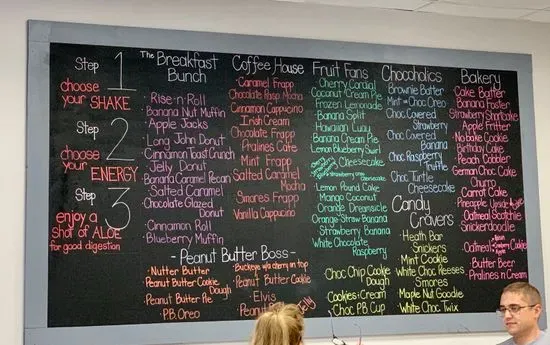 Step 1
choose
your SHAKE
Step 2
choose
your ENERGY
Step 3
enjoy a
shot of ALOE
for good digestion
The Breakfast
Bunch
Rise-n-Roll
Banana Nut Muffin
Apple Jacks
Long John Donut
Cinnamon Toast Crunch
Jelly Donut
Banana Caramel Pecan
Salted Caramel
Chocolate Glazed
Donut
Cinnamon Roll
Blueberry Muffin
Coffee House
Caramel Frapp
Chocolate Mocha
Cinnamon Cappuccino
Irish Cream
Chocolate Frapp
Pralines Cake
Mint Frapp
Salted Caramel
Mocha
Smores Frapp
Vanilla Cappuccino
- Peanut Butter Boss -
Nutter Butter
Peanut Butter Cookie
Dough
Peanut Butter Pie
P.B. Oreo
Buckeye w/a cherry on top
Peanut Butter Cookie
Elvis
Fruit Fans
Cherry Cordial
Coconut Cream Pie
Frozen Lemonade
Banana Split
Hawaiian Luau
Banana Cream Pie
Lemon Blueberry Swirl
Cheesecake
Lemon Pound Cake
Mango Coconut
Orange Dreamsicle
Orange-Straw Banana
Strawberry Banana
White Chocolate
Raspberry
Choc Chip Cookie
Dough
Cookies & Cream
Choc P.B. Cup
Chocoholics
Brownie Batter
Mint - Choc Oreo
Choc Covered
Strawberry
Choc Covered
Banana
Choc Raspberry
Truffle
Choc Turtle
Cheesecake
Candy
Cravers
Heath Bar
Snickers
Mint Cookie
White Choc Reeses
Smores
Maple Nut Goodie
White Choc Twix
Bakery
Cake Batter
Banana Foster
Strawberry Shortcake
Apple Fritter
No bake Cookie
Birthday Cake
Peach Cobbler
German Choc Cake
Churro
Carrot Cake
Pineapple Upside
Oatmeal Scotchie
Snickerdoodle
Oatmeal Cookie
Butter Beer
Pralines n Cream